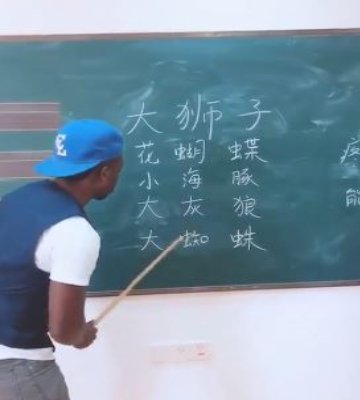 大狮子
花蝴蝶
小海豚
大灰狼
大蜘蛛
能
E